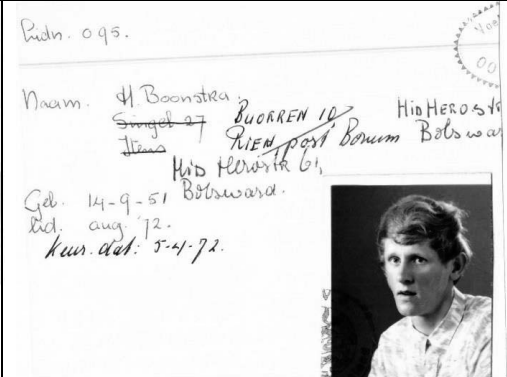 Lidn. 095.
Naam. H. Boonstra.
Singel 27
Itens
BUORREN 10
RIEN, post Bomum
HID HEROSTR
Bolswar
HID HEROSTR 61,
Bolsward.
Geb. 14-9-51
lid. aug. 72.
Keur. dat: 5-4-72.
00